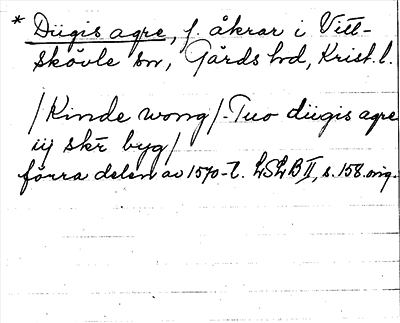 * Düigis agre, f. åkrar i Vitt-
skövle sn, Gärds hd, Krist. l.
/Kinde wong/-Tuo düigis agre
iij skr̄ byg/
förra delen av 1570-t. LSLB II, s. 158. orig.